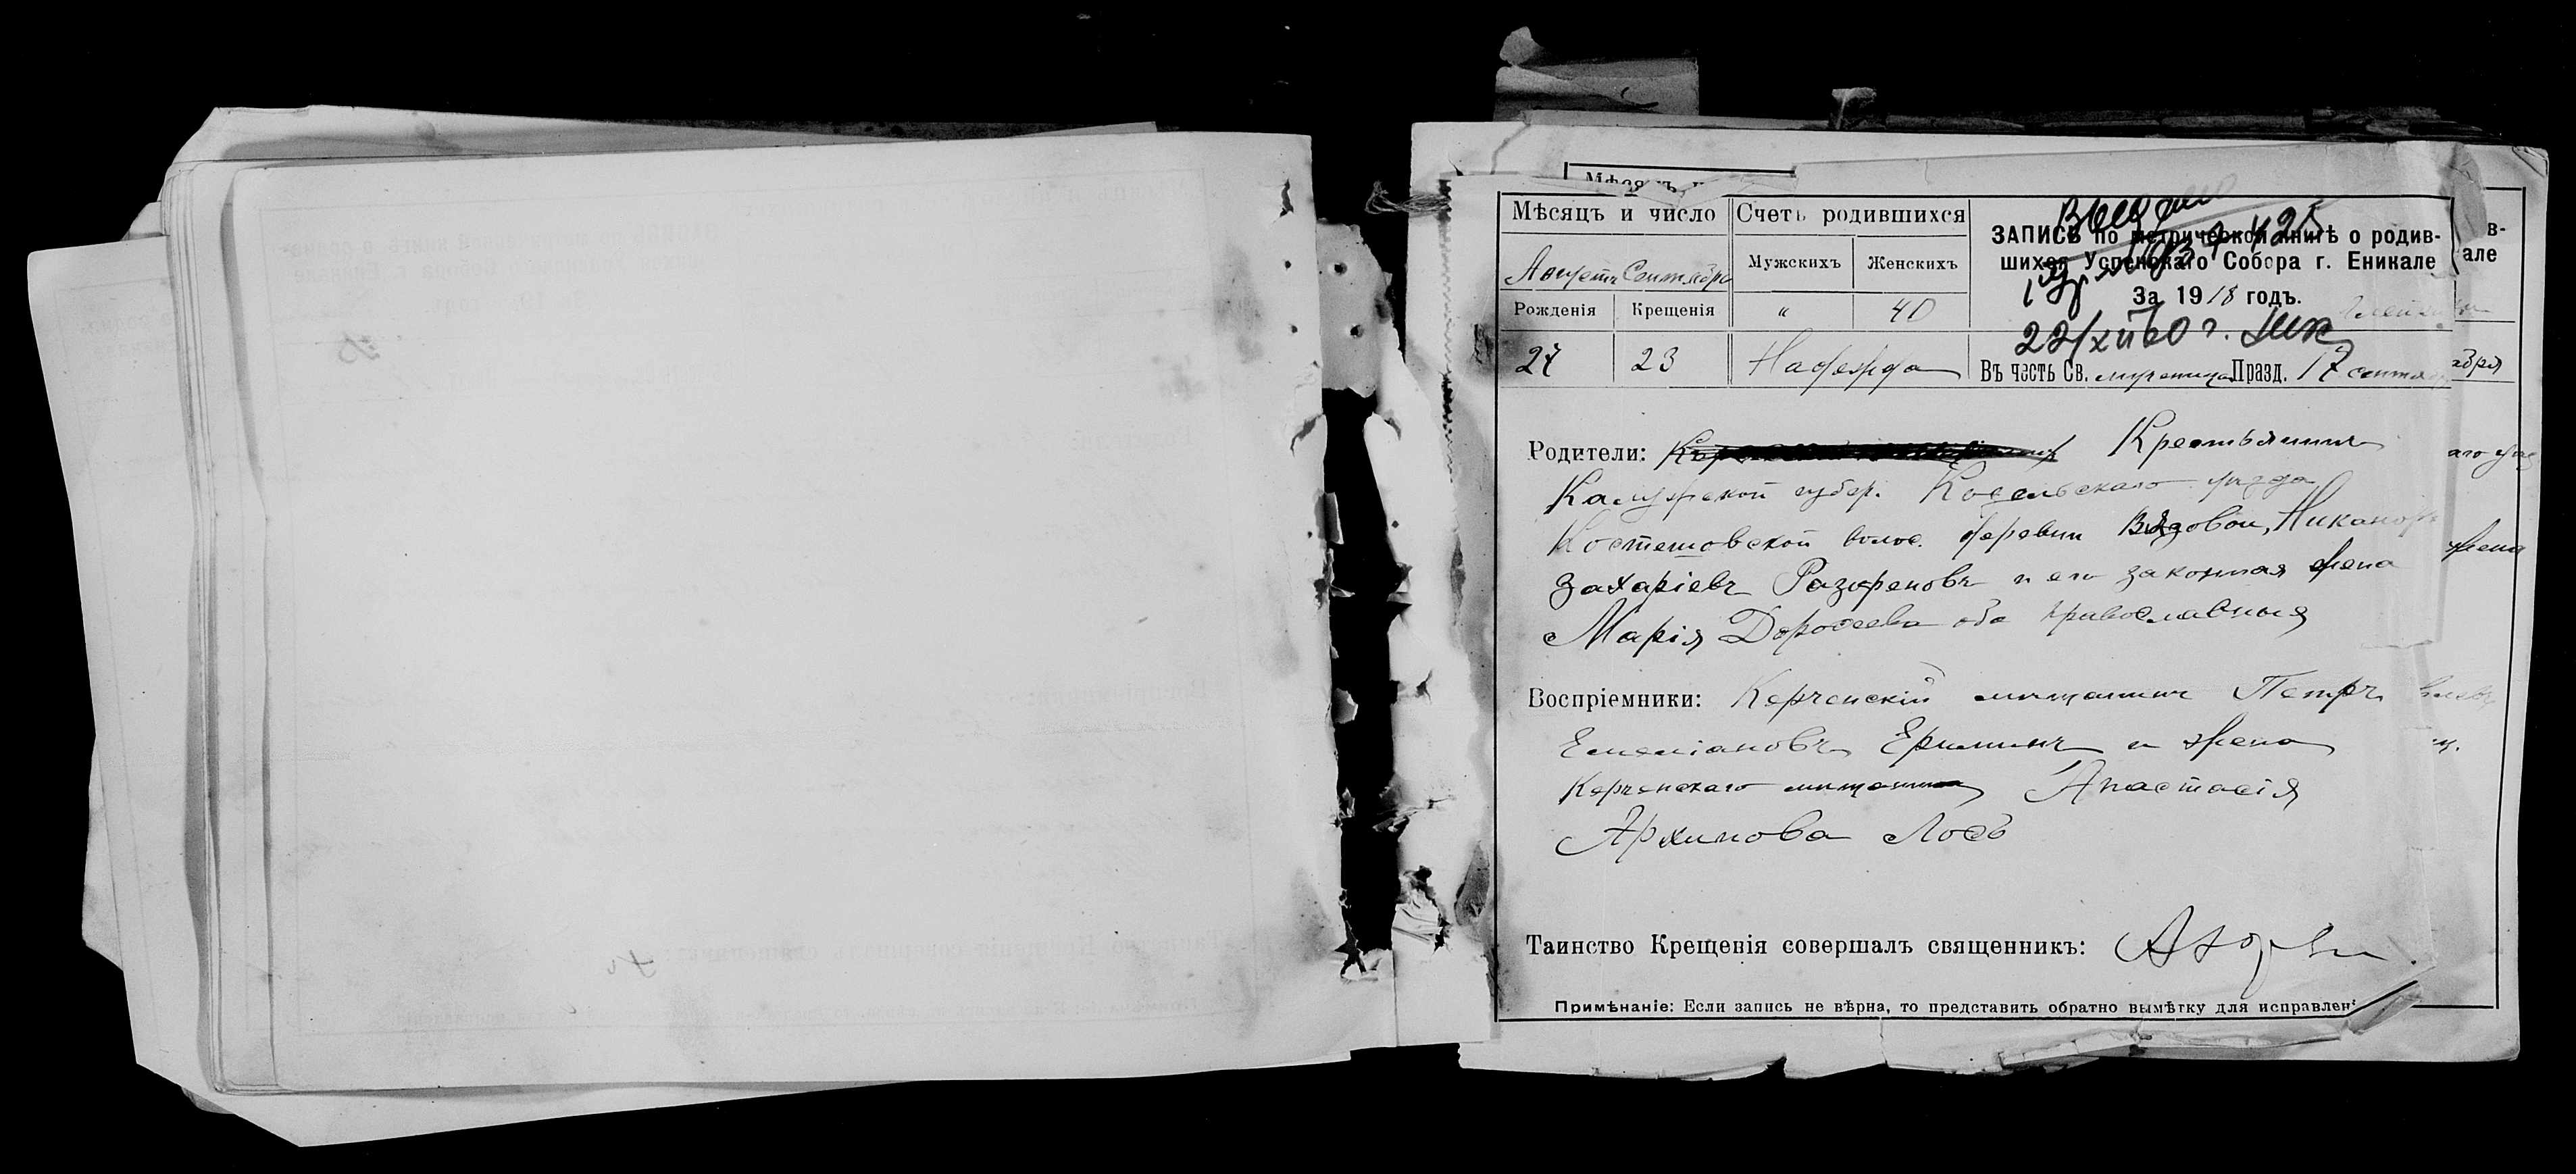 Мѣсяцъ и число
Счетъ родившихся
Августъ Сентябрь
Мужскихъ
Женскихъ
Рожденія
Крещенія
"
40
27
23
Надежда
Выдано
ЗАПИСЬ по метрической книгѣ о родив-
шихся Успенскаго Собора г. Еникале
За 1918 годъ.
22/XII 60 г.
Въ честь Св. мученица Празд. 17 сентяб
в-
але
абря
Родители: Крестьянинъ
Калужской губер. Козельскаго уѣзда
волос. деревни Никаноръ
Захаріевъ Разореновъ и его законная жена
Марія Дороѳеева оба православныя
жена
Воспріемники: Керченскій мѣщанинъ Петръ
Емеліановъ Ериминъ и жена
Керченскаго мѣщанина Анастасія
Архипова Лось
Таинство Крещенія совершалъ священникъ:
Примѣчаніе: Если запись не вѣрна, то представить обратно вымѣтку для исправлен